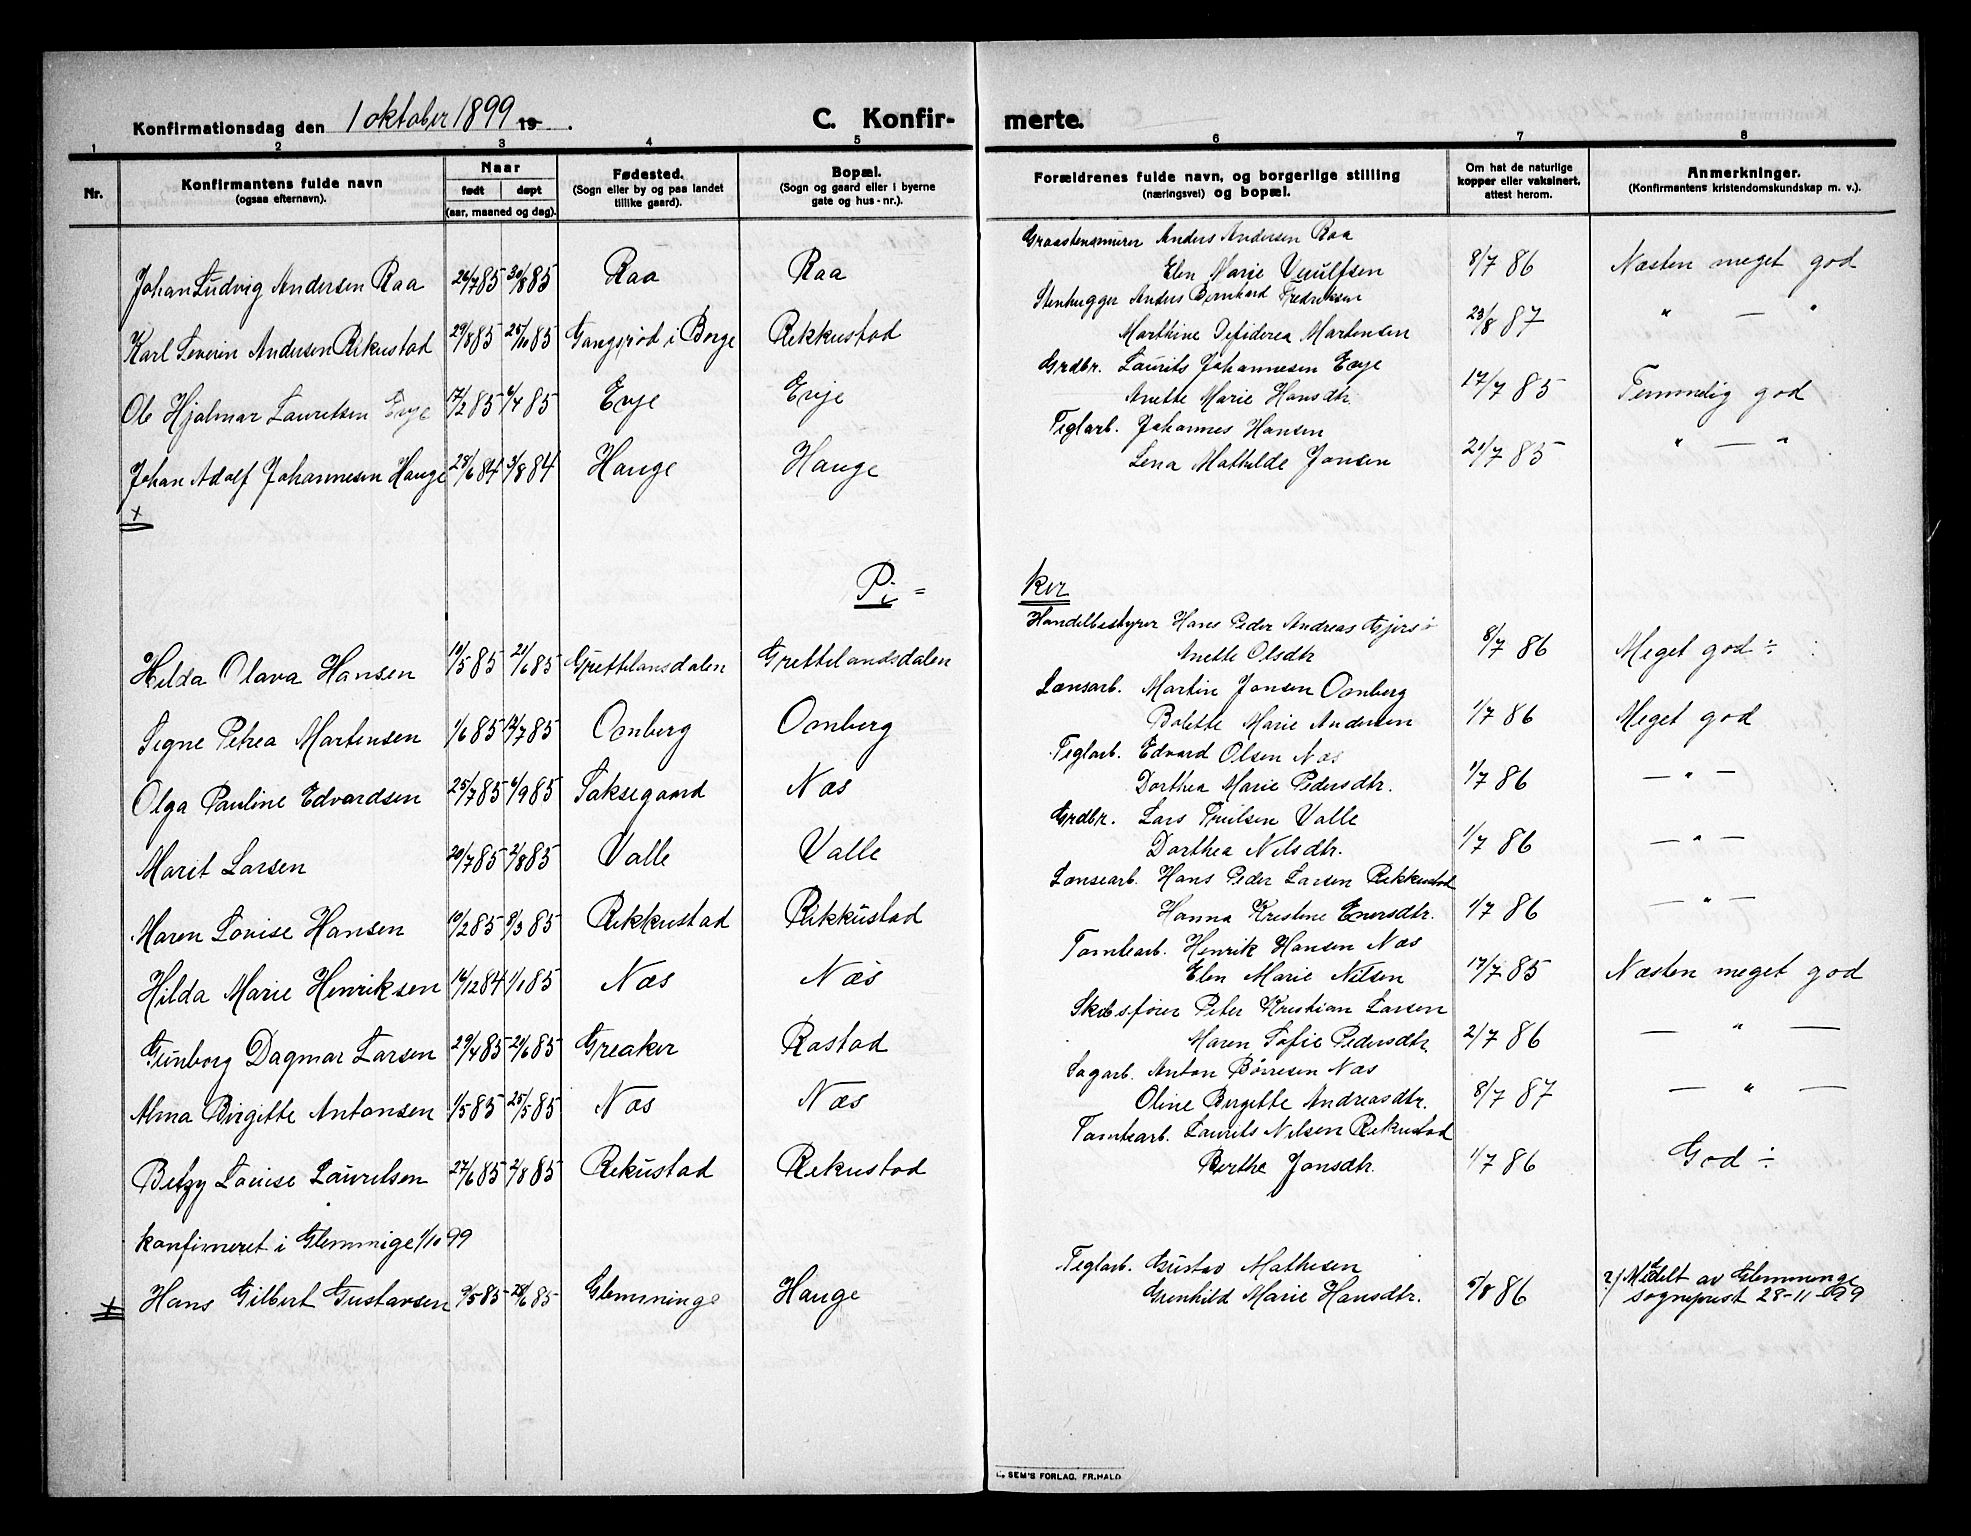 Konfirmationsdag den 1 oktober 1899 19 . C. Konfir- merte.
1 2 3 4 5 6 7 8
Nr. Konfirmantens fulde navn (ogsaa efternavn). Naar født døpt (aar, maaned og dag). Fødested. (Sogn eller by og paa landet tillike gaard). Bopæl. (Sogn og gaard eller i byerne gate og hus-nr.). Forældrenes fulde navn, og borgerlige stilling (næringsvei) og bopæl. Om hat de naturlige kopper eller vaksinert, attest herom. Anmerkninger. (Konfirmantens kristendomskundskap m. v.).
Graastensmurer Anders Andersen Raa
Johan Ludvig Andersen Raa 26/7 85 30/8 85 Raa Raa Elen Marie 8/7 86 Næsten meget god
Stenhugger Anders Bernhard Fredriksen
Karl Severin Andersen Rikustad 29/8 85 25/10 85 Gangsrød i Borge Rekkustad Marthine Desiderea Martensen 23/8 87 " — "
Grdbr. Laurits Johannesen Evje
Ole Hjalmar Lauretsen Evje 17/2 85 6/4 85 Evje Evje Anette Marie Hansdtr. 17/7 85 Temmelig god
Teglarb. Johannes Hansen
Johan Adolf Johannesen Hauge 28/6 84 3/8 84 Hauge Hauge Lena Mathilde Jonsen 21/7 85 " — "
+
Pi= ker
Handelbestyrer Hans Peder Andreas
Hilda Olava Hansen 19/5 85 21/6 85 Grettelansdalen Grettelandsdalen Anette Olsdtr 8/7 86 Meget god ÷
Lænsarb. Martin Jonsen Omberg
Signe Petrea Martensen 1/6 85 12/7 85 Omberg Omberg Bolette Marie Andersen 1/7 86 Meget god
Teglarb. Edvard Olsen Næs
Olga Pauline Edvardsen 25/7 85 6/9 85 Saksegaard Næs Dorthea Marie Pedersdtr. 1/7 86 — " —
Grdbr. Lars Valle
Marit Larsen 20/7 85 2/8 85 Valle Valle Dorthea Nelsdtr. 1/7 86 — " —
Lænsearb. Hans Peder Larsen Rekkustad
Maren Lovise Hansen 19/2 85 8/3 85 Rekkustad Rikkustad Hanna Kristine Enersdtr. 1/7 86 — " —
Tomtearb. Henrik Hansen Næs
Hilda Marie Henriksen 14/12 84 1/1 85 Næs Næs Elen Marie Nilsen 17/7 85 Næsten meget god
Skibsfører Peter Kristian Larsen
Gunborg Dagmar Larsen 29/4 85 21/6 85 Greaker Rostad Maren Sofie Pedersdtr. 2/7 86 — " —
Sagarb. Anton Børresen Næs
Alma Birgitte Antonsen 1/5 85 25/5 85 Næs Næs Oline Bergitte Andreasdtr. 8/7 87 — " —
Tomtearb. Laurits Nelsen Rekustad
Betzy Louise Lauretsen 27/6 85 2/8 85 Rekustad Rekustad Berthe Jonsdtr. 1/7 86 God ÷
konfirmeret i Glemminge 1/10 99
Teglarb. Gustav Mathisen
+ Hans Gilbert Gustavsen 9/5 85 28/6 85 Glemminge Hauge Gunhild Marie Hansdtr. 5/8 86 ?/ Meddelt av Glemminge
sogneprest 28-11-99
E. SEM'S FORLAG, FR.HALD